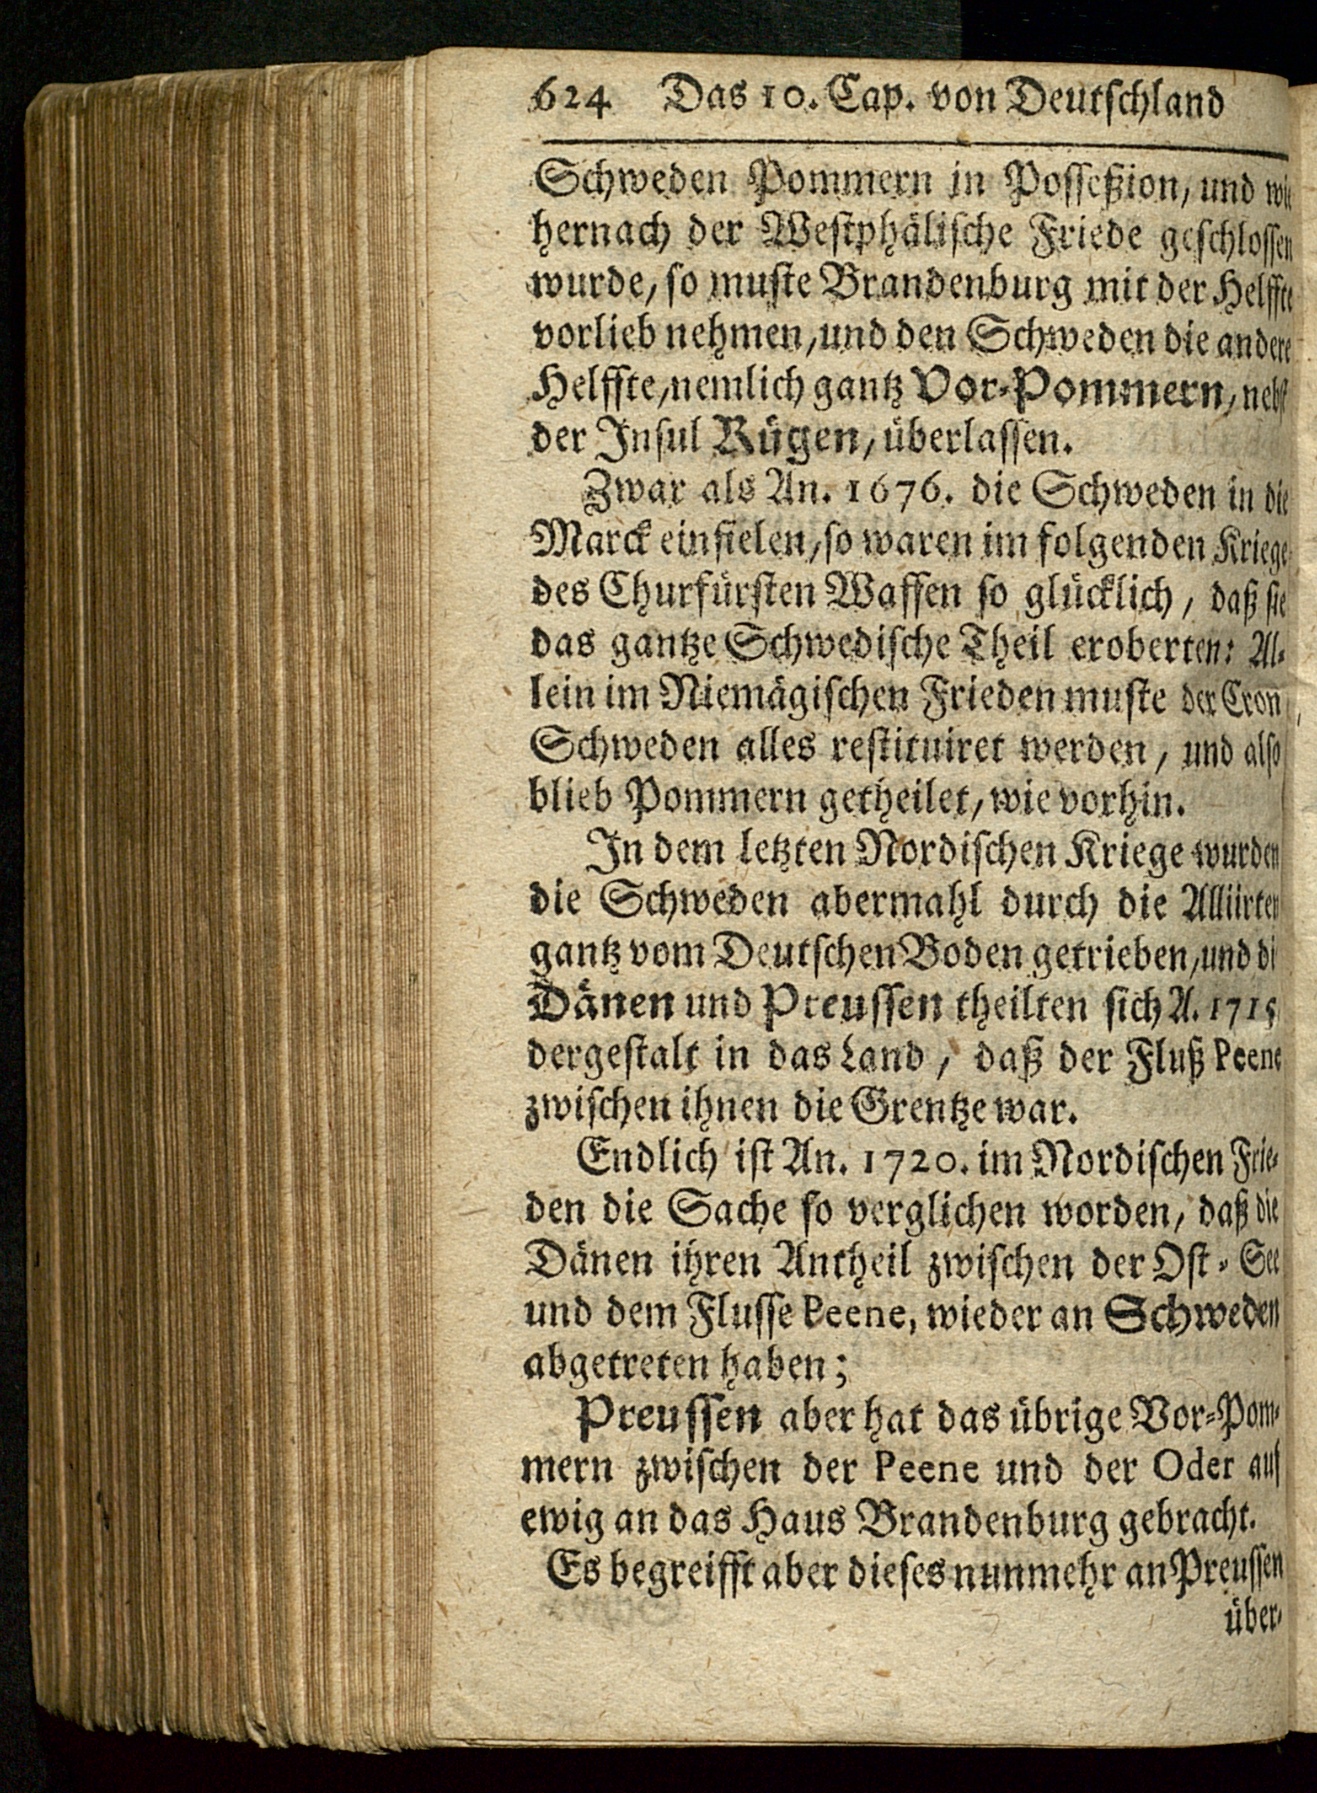 624 Das 10. Cap. von Deutschland
Schweden Pommern in Posseßion, und wie
hernach der Westphälische Friede geschlossen
wurde, so muste Brandenburg mit der Helffte
vorlieb nehmen, und den Schweden die andere
Helffte, nemlich gantz Vor-Pommern, nebst
der Insul Rügen, überlassen.
Zwar als An. 1676. die Schweden in die
Marck einfielen, so waren im folgenden Kriege
des Churfürsten Waffen so glücklich, daß sie
das gantze Schwedische Theil eroberten: Al-
lein im Niemägischen Frieden muste der Cron
Schweden alles restituiret werden, und also
blieb Pommern getheilet, wie vorhin.
In dem letzten Nordischen Kriege wurden
die Schweden abermahl durch die Alliirten
gantz vom Deutschen Boden getrieben, und di
Dänen und Preussen theilten sich A. 1715
dergestalt in das Land, daß der Fluß Peene
zwischen ihnen die Grentze war.
Endlich ist An. 1720. im Nordischen Frie-
den die Sache so verglichen worden, daß die
Dänen ihren Antheil zwischen der Ost-See
und dem Flusse Peene, wieder an Schweden
abgetreten haben;
Preussen aber hat das übrige Vor-Pom-
mern zwischen der Peene und der Oder auf
ewig an das Haus Brandenburg gebracht.
Es begreifft aber dieses nunmehr an Preussen
über-